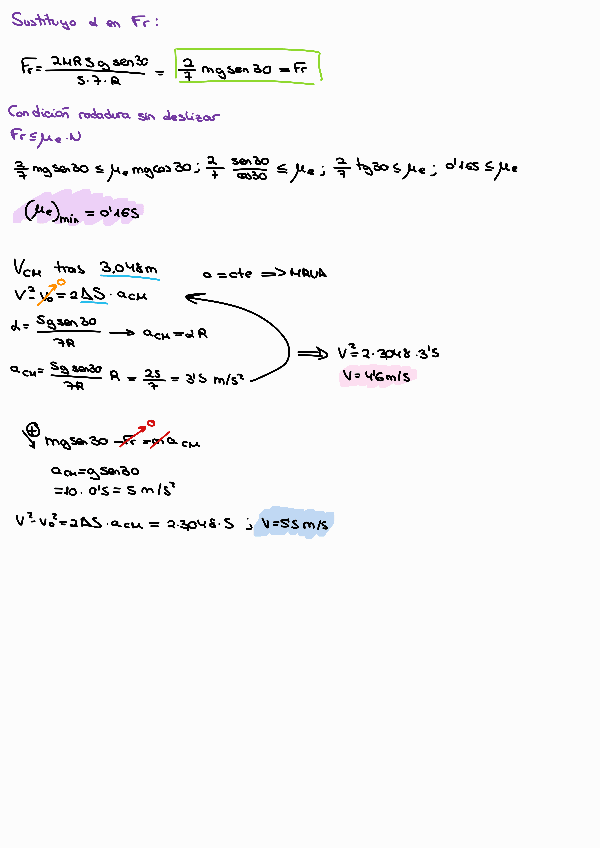 Sustituyo α en Fr:
Fr = 2MR5g sen30 / 5·7·R = 2/7 mg sen30 = Fr
Condición rodadura sin deslizar
Fr ≤ μe·N
2/7 mg sen30 ≤ μe mg cos30 ; 2/7 sen30/cos30 ≤ μe ; 2/7 tg30 ≤ μe ; 0'165 ≤ μe
(μe)min = 0'165
VCM tras 3,048m a = cte => MRUA
V² - V₀² = 2ΔS · aCM
0
α = 5g sen30 / 7R → aCM = αR
aCM = 5g sen30 / 7R R = 25/7 = 3'5 m/s² => V² = 2·3'048·3'5
V = 4'6 m/s
⊕ mg sen30 - Fr = m aCM
0
aCM = g sen30
= 10 · 0'5 = 5 m/s²
V² - V₀² = 2ΔS · aCM = 2·3'048·5 ; V = 5'5 m/s